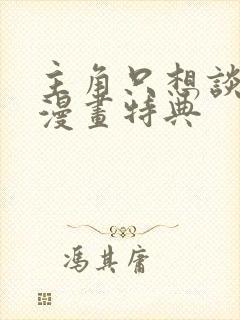 主角只想談
漫畫特典
馮其庸